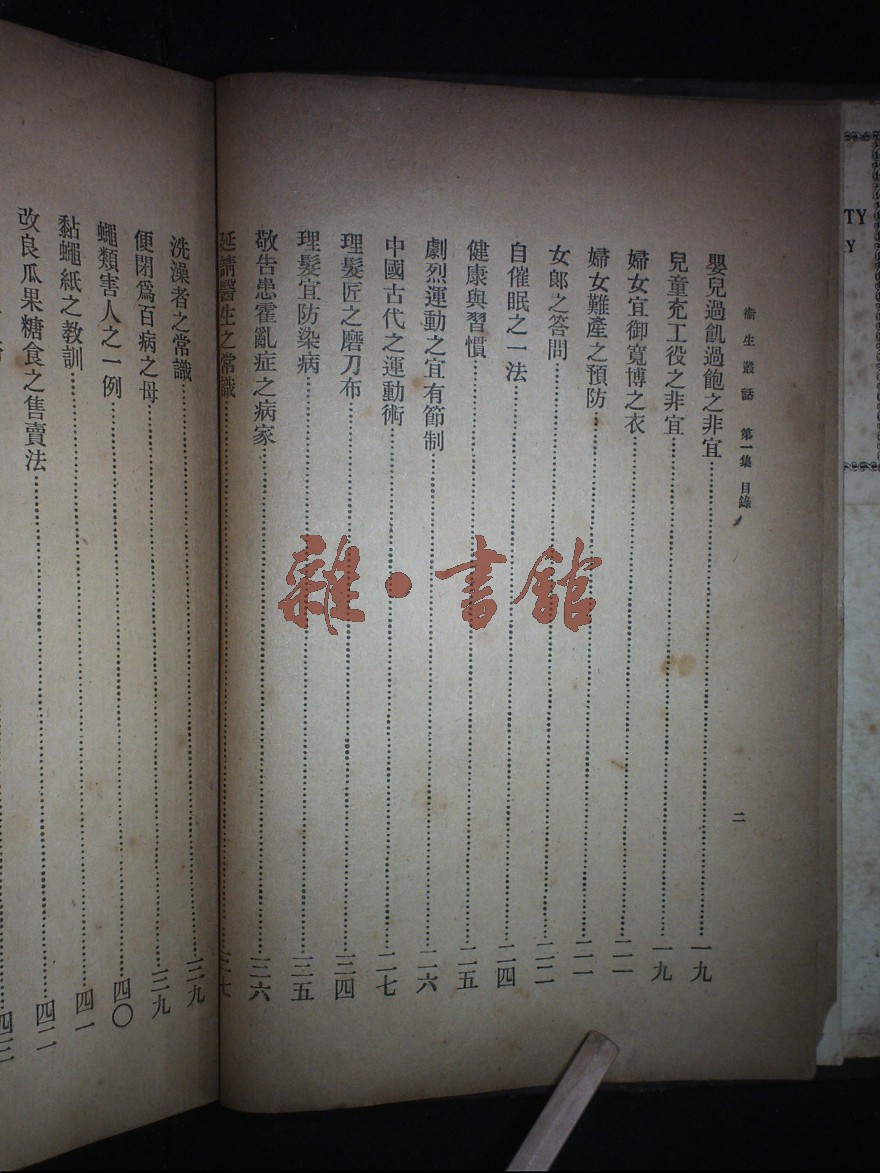 衞生叢話 第一集 目錄
二
嬰兒過飢過飽之非宜……一九
兒童充工役之非宜……一九
婦女宜御寬博之衣……二一
婦女難產之預防……二一
女郎之答問……二二
自催眠之一法……二四
健康與習慣……二五
劇烈運動之宜有節制……二六
中國古代之運動術……二七
理髮匠之磨刀布……三四
理髮宜防染病……三五
敬告患霍亂症之病家……三六
延請醫生之常識……三七
洗澡者之常識……三九
便閉爲百病之母……三九
蠅類害人之一例……四〇
黏蠅紙之教訓……四一
改良瓜果糖食之售賣法……四二
四三
雜·書館
TY
Y